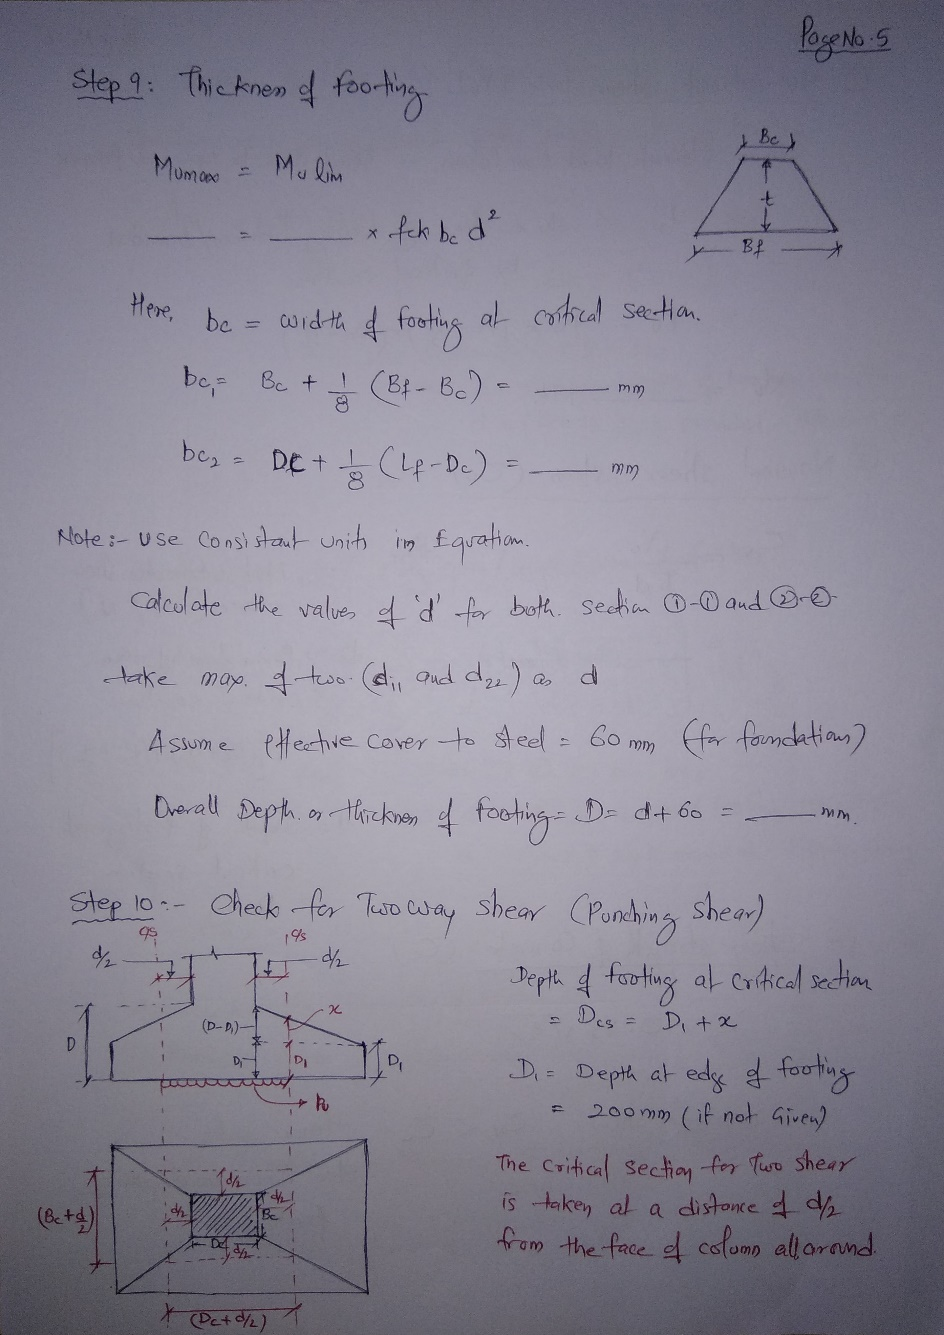 Page No. 5
Step 9: Thickness of footing
Bc
t
Bf
Mumax = Mu lim
___ = ___ x fck bc d²
Here, bc = width of footing at critical section.
bc₁ = Bc + 1/8 (Bf - Bc) = ___ mm
bc₂ = Dc + 1/8 (Lf - Dc) = ___ mm
Note :- Use Consistant units in Equation.
Calculate the values of 'd' for both section ①-① and ②-②
take max. of two (d₁₁ and d₂₂) as d
Assume effective cover to steel = 60 mm (for foundations)
Overall Depth or thickness of footing = D = d + 60 = ___ mm.
Step 10 :- Check for Two way shear (Punching shear)
d/2
d/2
x
D
(D-D₁)
D₁
D₁
D₁
Depth of footing at critical section
= Dcs = D₁ + x
D₁ = Depth at edge of footing
= 200mm (if not Given)
The critical section for Two shear
is taken at a distance of d/2
from the face of column all around.
d/2
d/2
d/2
Bc
(Bc+d/2)
Dc
d/2
(Dc+d/2)